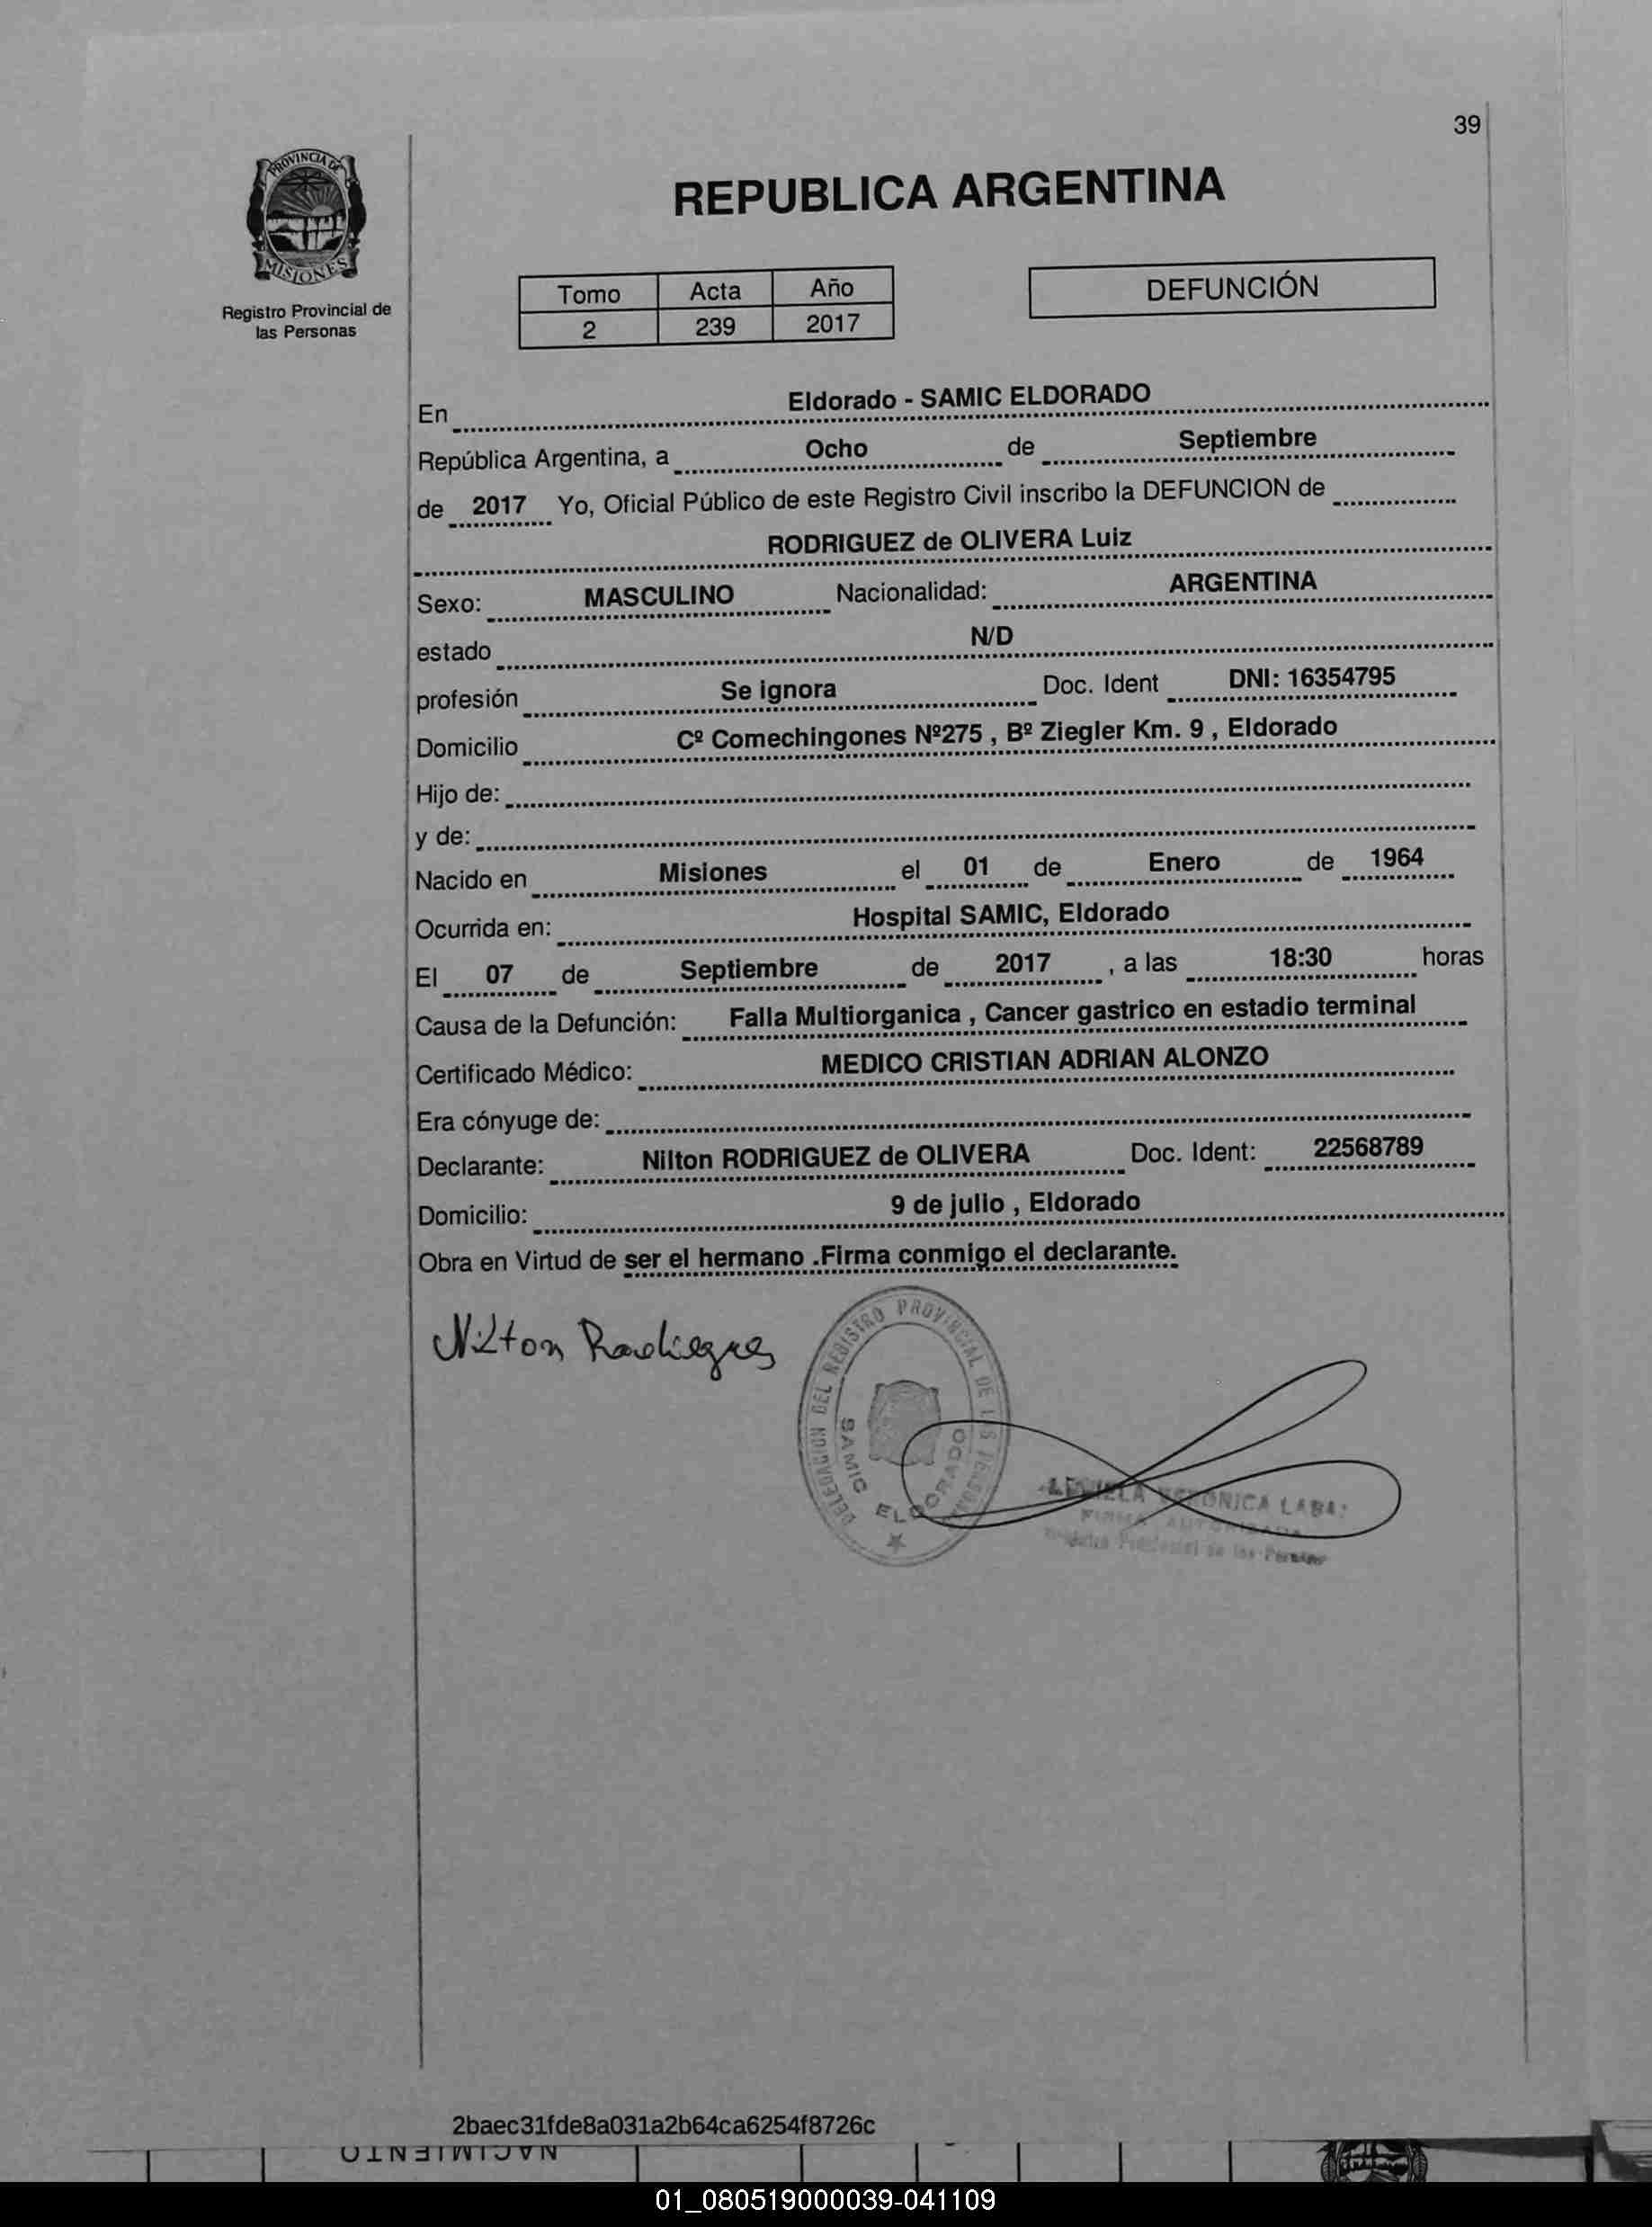 39
PROVINCIA DE
MISIONES
Registro Provincial de
las Personas
REPUBLICA ARGENTINA
Tomo Acta Año
2 239 2017
DEFUNCIÓN
En Eldorado - SAMIC ELDORADO
República Argentina, a Ocho de Septiembre
de 2017 Yo, Oficial Público de este Registro Civil inscribo la DEFUNCION de
RODRIGUEZ de OLIVERA Luiz
Sexo: MASCULINO Nacionalidad: ARGENTINA
estado N/D
profesión Se ignora Doc. Ident DNI: 16354795
Domicilio Cº Comechingones Nº275 , Bº Ziegler Km. 9 , Eldorado
Hijo de:
y de:
Nacido en Misiones el 01 de Enero de 1964
Ocurrida en: Hospital SAMIC, Eldorado
El 07 de Septiembre de 2017 , a las 18:30 horas
Causa de la Defunción: Falla Multiorganica , Cancer gastrico en estadio terminal
Certificado Médico: MEDICO CRISTIAN ADRIAN ALONZO
Era cónyuge de:
Declarante: Nilton RODRIGUEZ de OLIVERA Doc. Ident: 22568789
Domicilio: 9 de julio , Eldorado
Obra en Virtud de ser el hermano .Firma conmigo el declarante.
Nilton
DELEGACION DEL REGISTRO PROVINCIAL DE LAS PERSONAS
SAMIC ELDORADO
2baec31fde8a031a2b64ca6254f8726c
NACIMIENTO
01_080519000039-041109